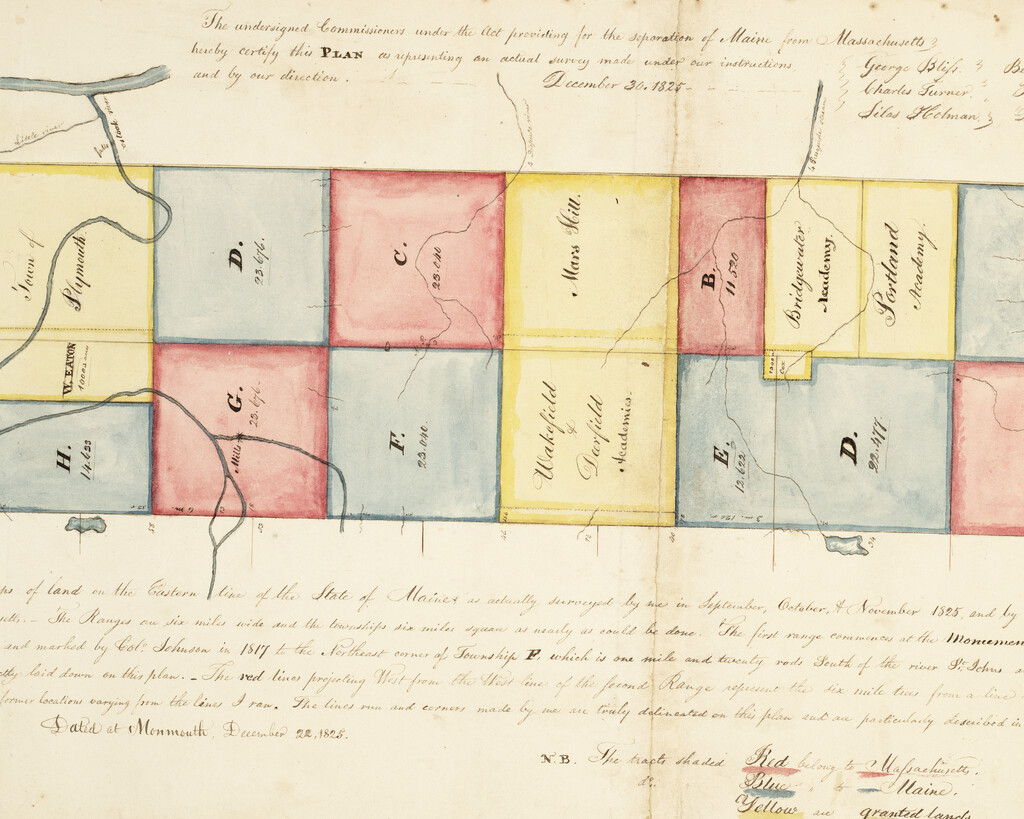 The undersigned Commissioners under the Act providing for the separation of Maine from Massachusetts
hereby certify this PLAN as representing an actual survey made under our instructions
and by our direction.
December 30. 1825
George Bliss.
Charles Turner.
Silas Holman
Town of
Plymouth.
W. EATON
10002 acres
H.
14.633
D.
23.676.
G.
23.676.
Mills
C.
23.040
F.
23.040.
Mars Hill.
Wakefield
&
Dearfield
Academies.
B.
11.520
Bridgewater
Academy.
Portland
Academy.
E.
12.622
D.
22.477.
of land on the Eastern line of the State of Maine as actually surveyed by me in September, October, & November 1825, and by
The Ranges are six miles wide and the townships six miles square as nearly as could be done. The first range commences at the Monument
and marked by Colo. Johnson in 1817 to the Northeast corner of Township F. which is one mile and twenty rods South of the river St. Johns
laid down on this plan. – The red lines projecting West from the West line of the Second Range represent the six mile trees from a line
former locations varying from the lines I ran. The lines run and corners made by me are truly delineated on this plan and are particularly described in
Dated at Monmouth, December 22, 1825.
N.B. The tracts shaded Red belong to Massachusetts.
do. Blue to Maine.
Yellow are granted lands